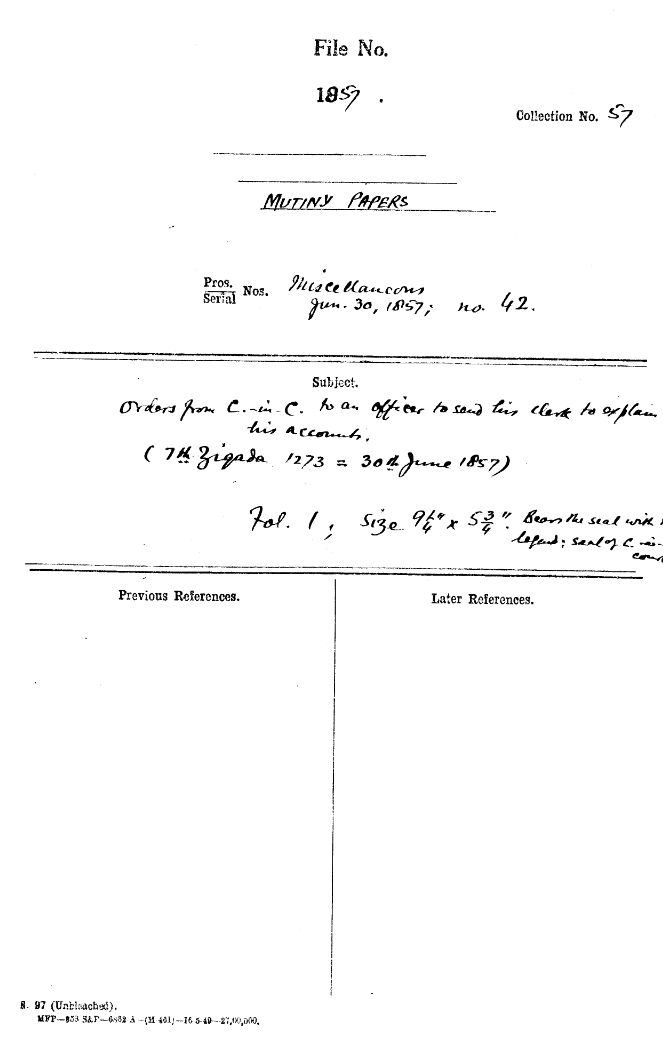 File No.
1857 .
Collection No. 57
MUTINY PAPERS
Pros.
Serial Nos. Miscellaneous
Jun. 30, 1857; no. 42.
Subject.
Orders from C.-in-C. to an officer to send his clerk to explain
his accounts.
( 7th Zigada 1273 = 30th June 1857)
Fol. 1, size 9¼" x 5¾". Bears the seal with
legend; seal of C.-in-
Previous References.
Later References.
S. 97 (Unbleached).
MFP—853 S&P—6852 A—(M-461)—16-5-49—27,00,000.